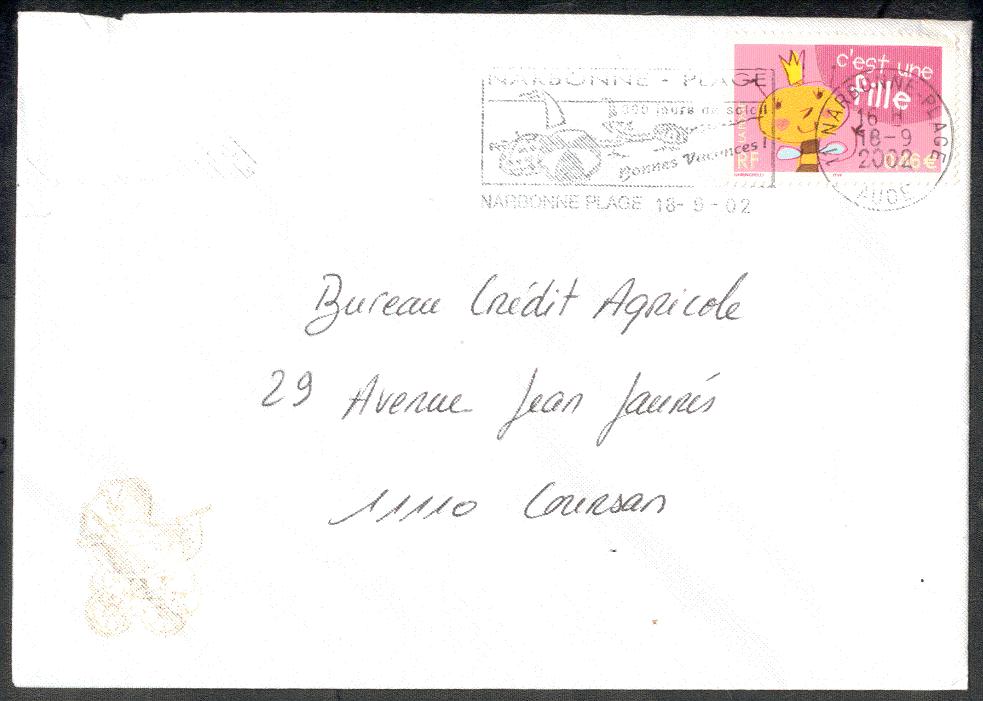 NARBONNE - PLAGE
300 jours de soleil
Bonnes Vacances !
NARBONNE PLAGE 18- 9 - 02
c'est une
fille
RF
0,46 €
11 NARBONNE-PLAGE
16 H
18-9
2002
AUDE
Bureau Crédit Agricole
29 Avenue Jean Jaurés
11110 Coursan